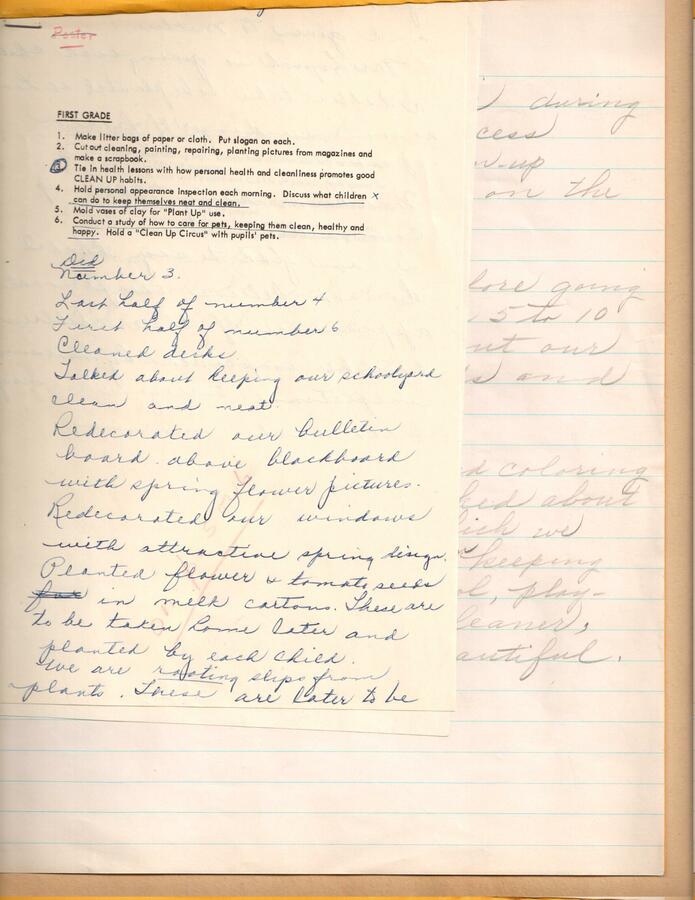 Poster
FIRST GRADE
1. Make litter bags of paper or cloth. Put slogan on each.
2. Cut out cleaning, painting, repairing, planting pictures from magazines and
make a scrapbook.
3. Tie in health lessons with how personal health and cleanliness promotes good
CLEAN UP habits.
4. Hold personal appearance inspection each morning. Discuss what children x
can do to keep themselves neat and clean.
5. Mold vases of clay for "Plant Up" use.
6. Conduct a study of how to care for pets, keeping them clean, healthy and
happy. Hold a "Clean Up Circus" with pupils' pets.
Did
Number 3.
Last half of number 4
First half of number 6
Cleaned desks.
Talked about keeping our schoolyard
clean and neat.
Redecorated our bulletin
board above blackboard
with spring flower pictures.
Redecorated our windows
with attractive spring design.
Planted flower & tomato seeds
for in milk cartons. These are
to be taken home later and
planted by each child.
We are rooting slips from
plants. These are later to be
during
cess
w-up
on the
fore going
5 to 10
out our
s and
d coloring
ked about
ich we
keeping
ol, play-
leaner,
autiful.